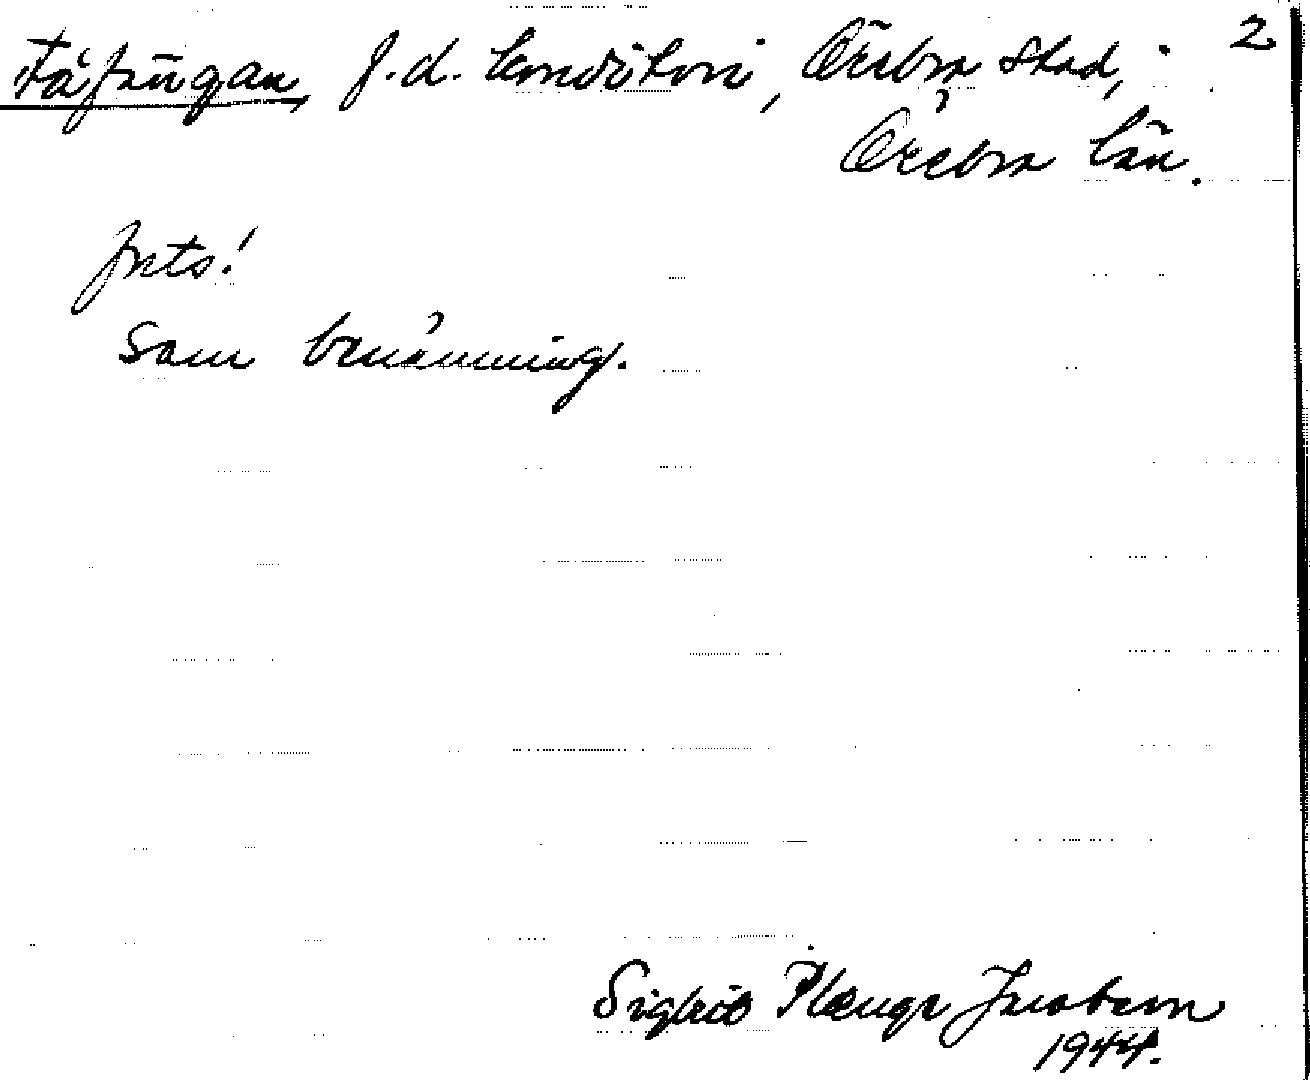 Fåfängan, f.d. konditori, Örebro stad, 2
Örebro län.
Juts!
Sam benämning.
Sigrid Plænge Jacobson
1944.